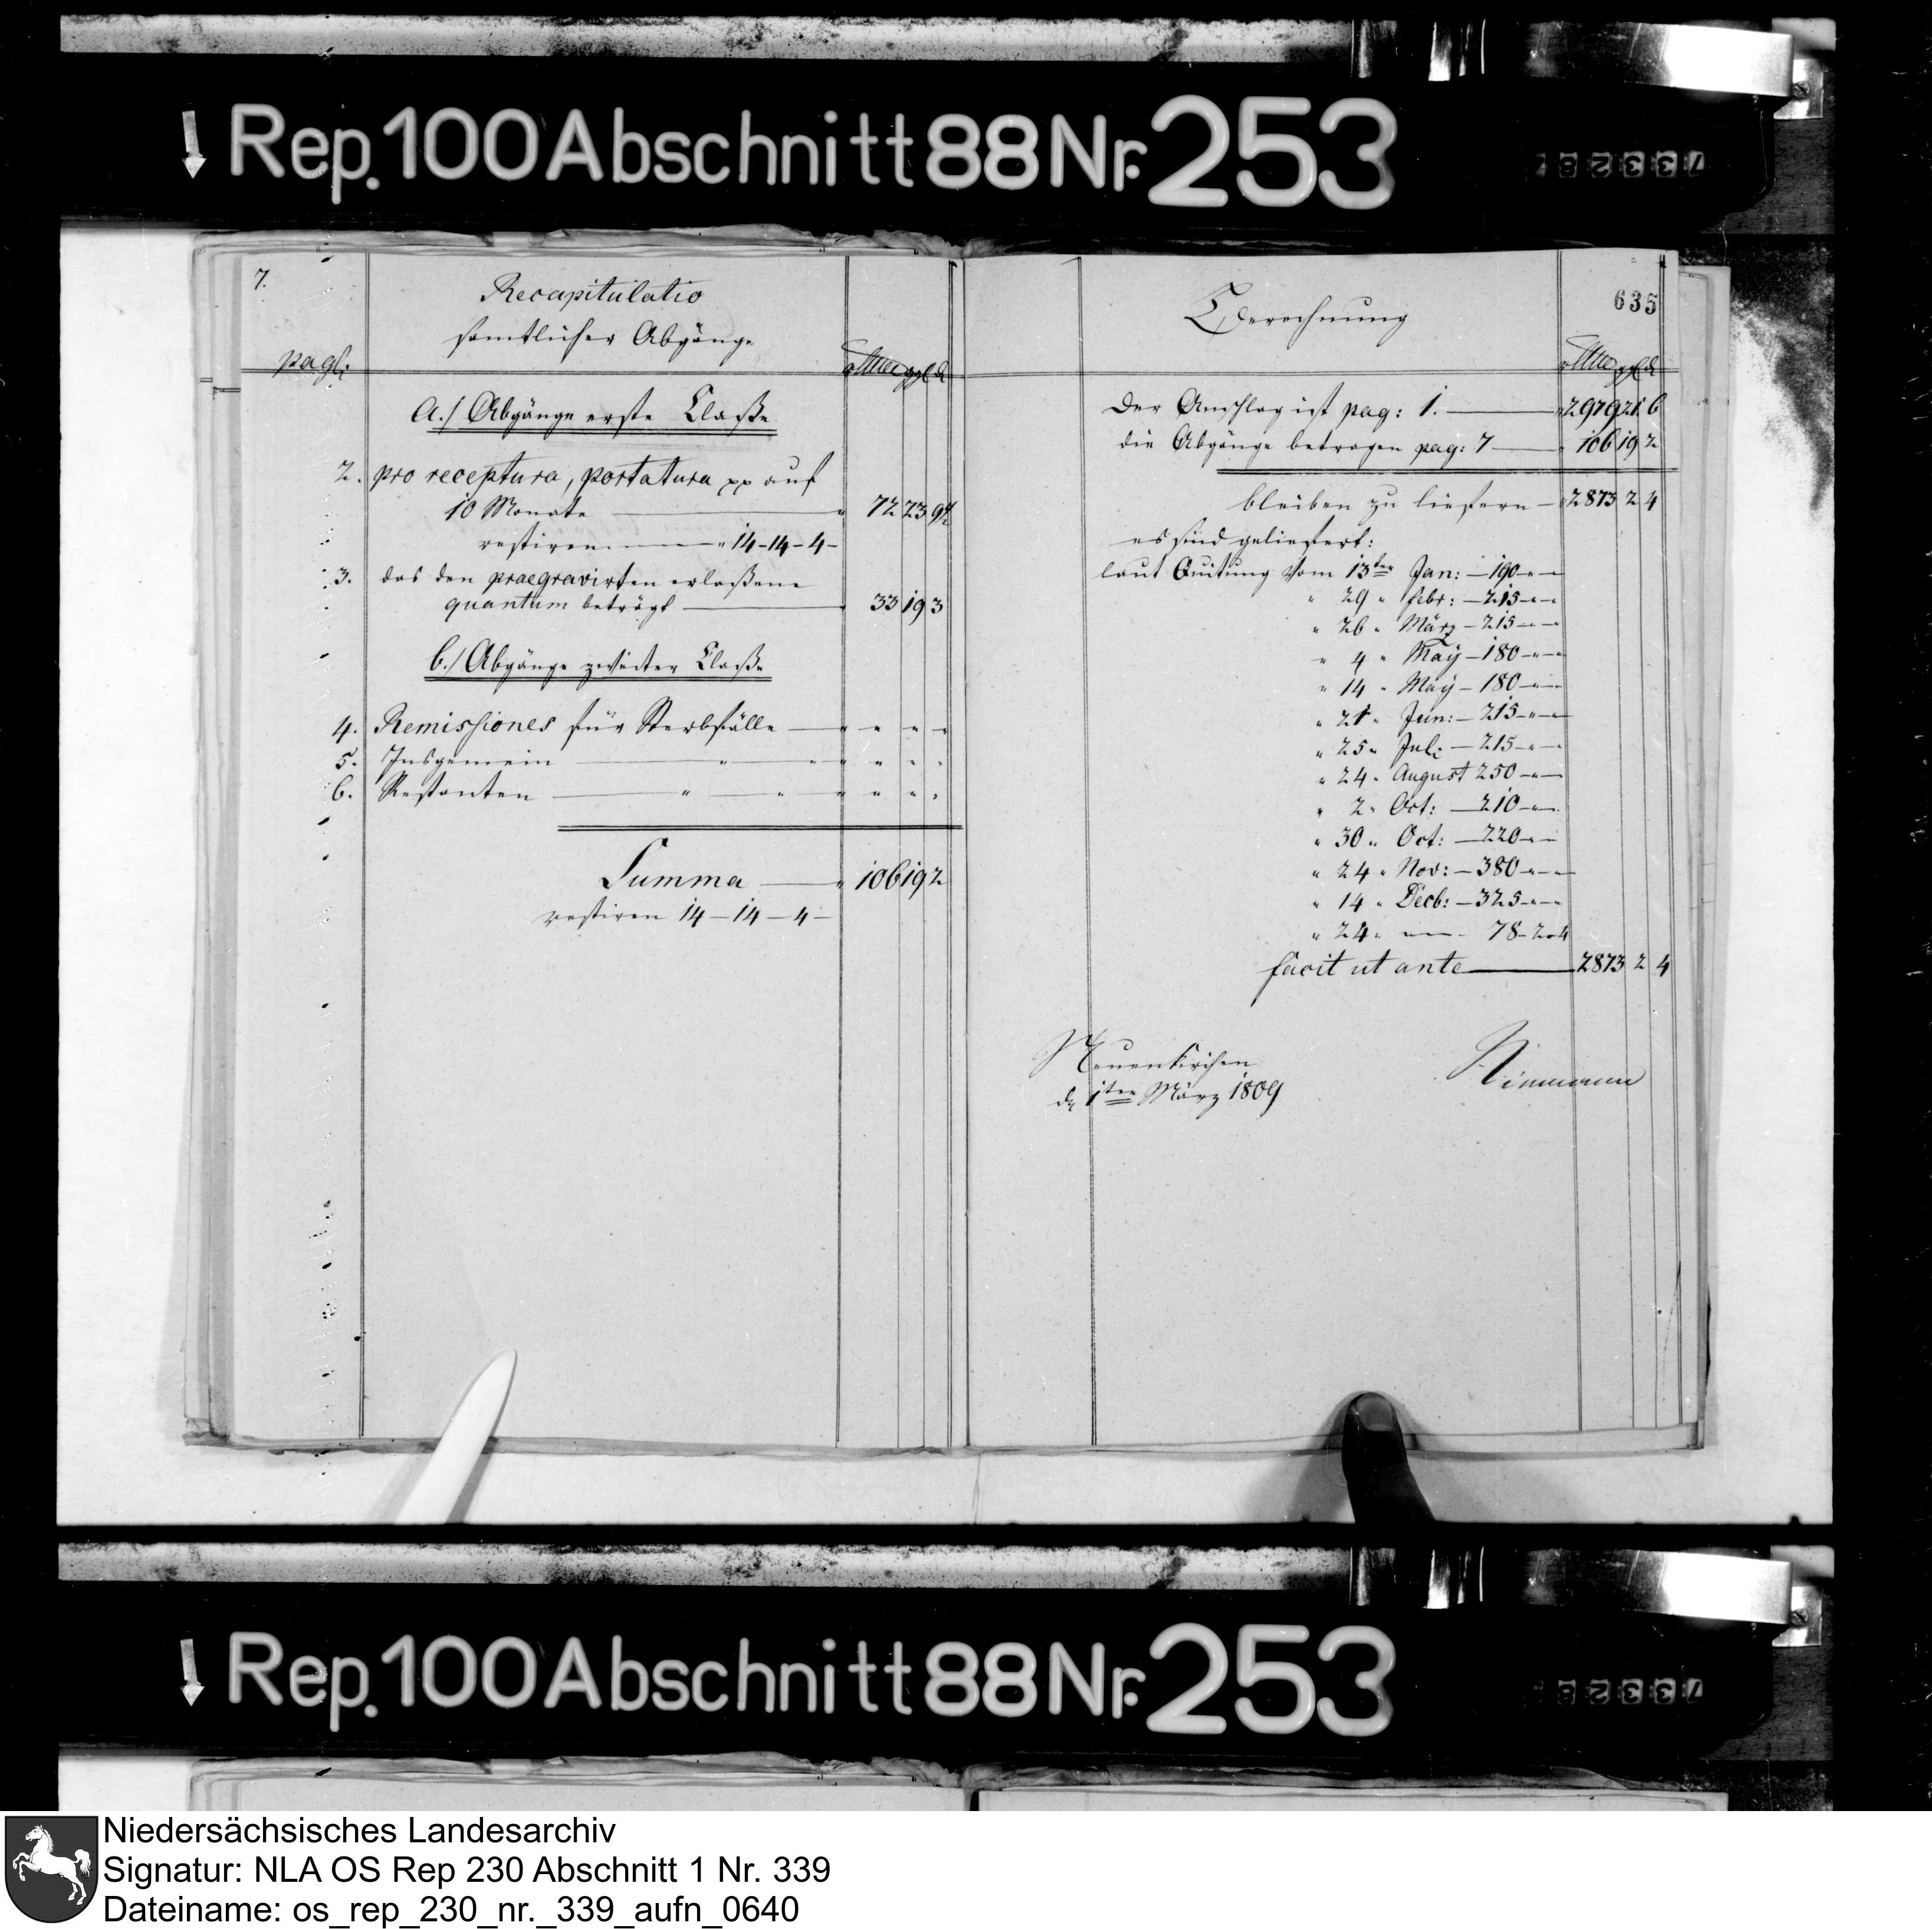 Rep. 100 Abschnitt 88 Nr. 253
733282
7.
Recapitulatio
samtlicher Abgänge
pagl:
ggl d
a./ Abgänge erste Claße
2. pro receptura, portatura pp auf
10 Monate — " 72 23 9½
restiren — " 14-14-4-
3. das den praegravirten erlaßene
quantum beträgt — " 33 19 3
b./ Abgänge zweiter Claße
4. Remissiones für Sterbfälle — " " " "
5. Insgemein — " " " " " "
6. Restanten — " " " " " "
Summa — " 106 19 2
restiren 14-14-4-
635
Berechnung
ggl d
Der Anschlag ist pag: 1. — " 2979 21 6
die Abgänge betragen pag: 7 — " 106 19 2
bleiben zu liefern — " 2873 2 4
es sind geliefert:
laut Quitung vom 13ten Jan: — 190 - " -
" 29 " febr: — 215 - " -
" 26 " März — 215 - " -
" 4 " May — 180 - " -
" 14 " May — 180 - " -
" 21 " Jun: — 215 - " -
" 25 " Jul: — 215 - " -
" 24 " August 250 - " -
" 2 " Oct: — 210 - " -
" 30 " Oct: — 220 - " -
" 24 " Nov: — 380 - " -
" 14 " Decb: — 325 - " -
" 24 " — " — 78-2-4
facit ut ante — 2873 2 4
Neuenkirchen
d. 1ten März 1809
Rep. 100 Abschnitt 88 Nr. 253
733282
Niedersächsisches Landesarchiv
Signatur: NLA OS Rep 230 Abschnitt 1 Nr. 339
Dateiname: os_rep_230_nr._339_aufn_0640